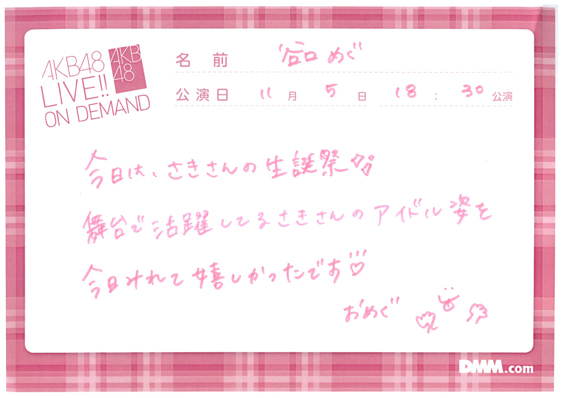 AKB48
LIVE!!
ON DEMAND
AKB
48
名前 谷口めぐ
公演日 11月5日 18:30公演
今日は、さきさんの生誕祭
舞台で活躍してるさきさんのアイドル姿を
今日みれて嬉しかったです
おめぐ
DMM.com